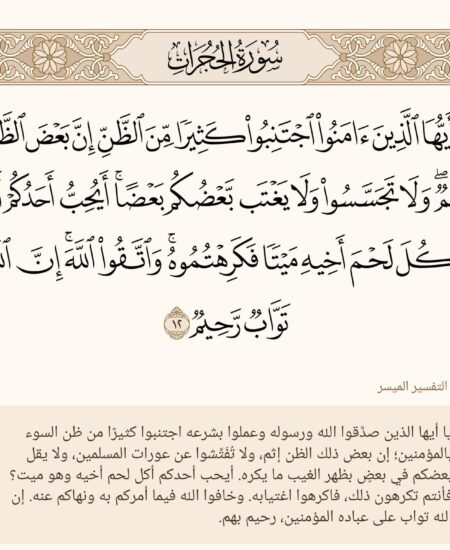 سُورَةُ الْحُجُرَاتِ
أَيُّهَا ٱلَّذِينَ ءَامَنُوا۟ ٱجْتَنِبُوا۟ كَثِيرًا مِّنَ ٱلظَّنِّ إِنَّ بَعْضَ
وَلَا تَجَسَّسُوا۟ وَلَا يَغْتَب بَّعْضُكُم بَعْضًا ۚ أَيُحِبُّ أَحَدُكُمْ
لَحْمَ أَخِيهِ مَيْتًا فَكَرِهْتُمُوهُ ۚ وَٱتَّقُوا۟ ٱللَّهَ ۚ إِنَّ
تَوَّابٌ رَّحِيمٌ ١٢
التفسير الميسر
يا أيها الذين صدَّقوا الله ورسوله وعملوا بشرعه اجتنبوا كثيرًا من ظن السوء
بالمؤمنين؛ إن بعض ذلك الظن إثم، ولا تُفَتِّشوا عن عورات المسلمين، ولا يقل
بعضكم في بعضٍ بظهر الغيب ما يكره. أيحب أحدكم أكل لحم أخيه وهو ميت؟
فأنتم تكرهون ذلك، فاكرهوا اغتيابه. وخافوا الله فيما أمركم به ونهاكم عنه. إن
الله تواب على عباده المؤمنين، رحيم بهم.